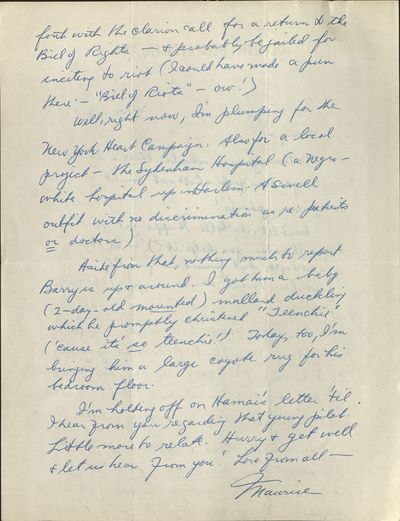 forth with the clarion call for a return to the
Bill of Rights — & probably be jailed for
inciting to riot (I could have made a pun
there — "Bill of Riots" — ow!)
Well, right now, I'm plumping for the
New York Heart Campaign. Also for a local
project — the Sydenham Hospital (a Negro-
white hospital up in Harlem. A swell
outfit with no discrimination as re: patients
or doctors)
Aside from that, nothing much to report
Barry is up & around. I got him a baby
(2-day-old mounted) mallard duckling
which he promptly christened "Teenchie"
('cause its so teenchie!) Today, too, I'm
buying him a large coyote rug for his
bedroom floor.
I'm holding off on Hamai's letter 'til
I hear from you regarding that young pilot.
Little more to relate. Hurry & get well
& let us hear from you! Love from all —
Maurice